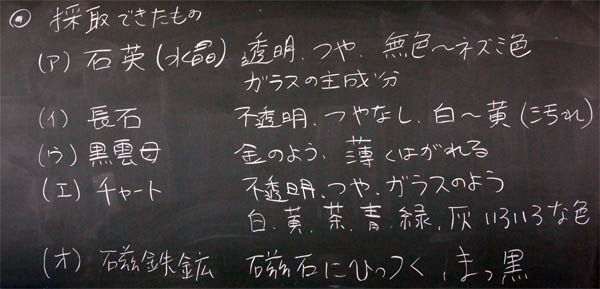 ⑨ 採取できたもの
(ア) 石英(水晶) 透明、つや、無色～ネズミ色
ガラスの主成分
(イ) 長石 不透明、つやなし、白～黄(汚れ)
(ウ) 黒雲母 金のよう、薄くはがれる
(エ) チャート 不透明、つや、ガラスのよう
白、黄、茶、青、緑、灰 いろいろな色
(オ) 磁鉄鉱 磁石にひっつく まっ黒